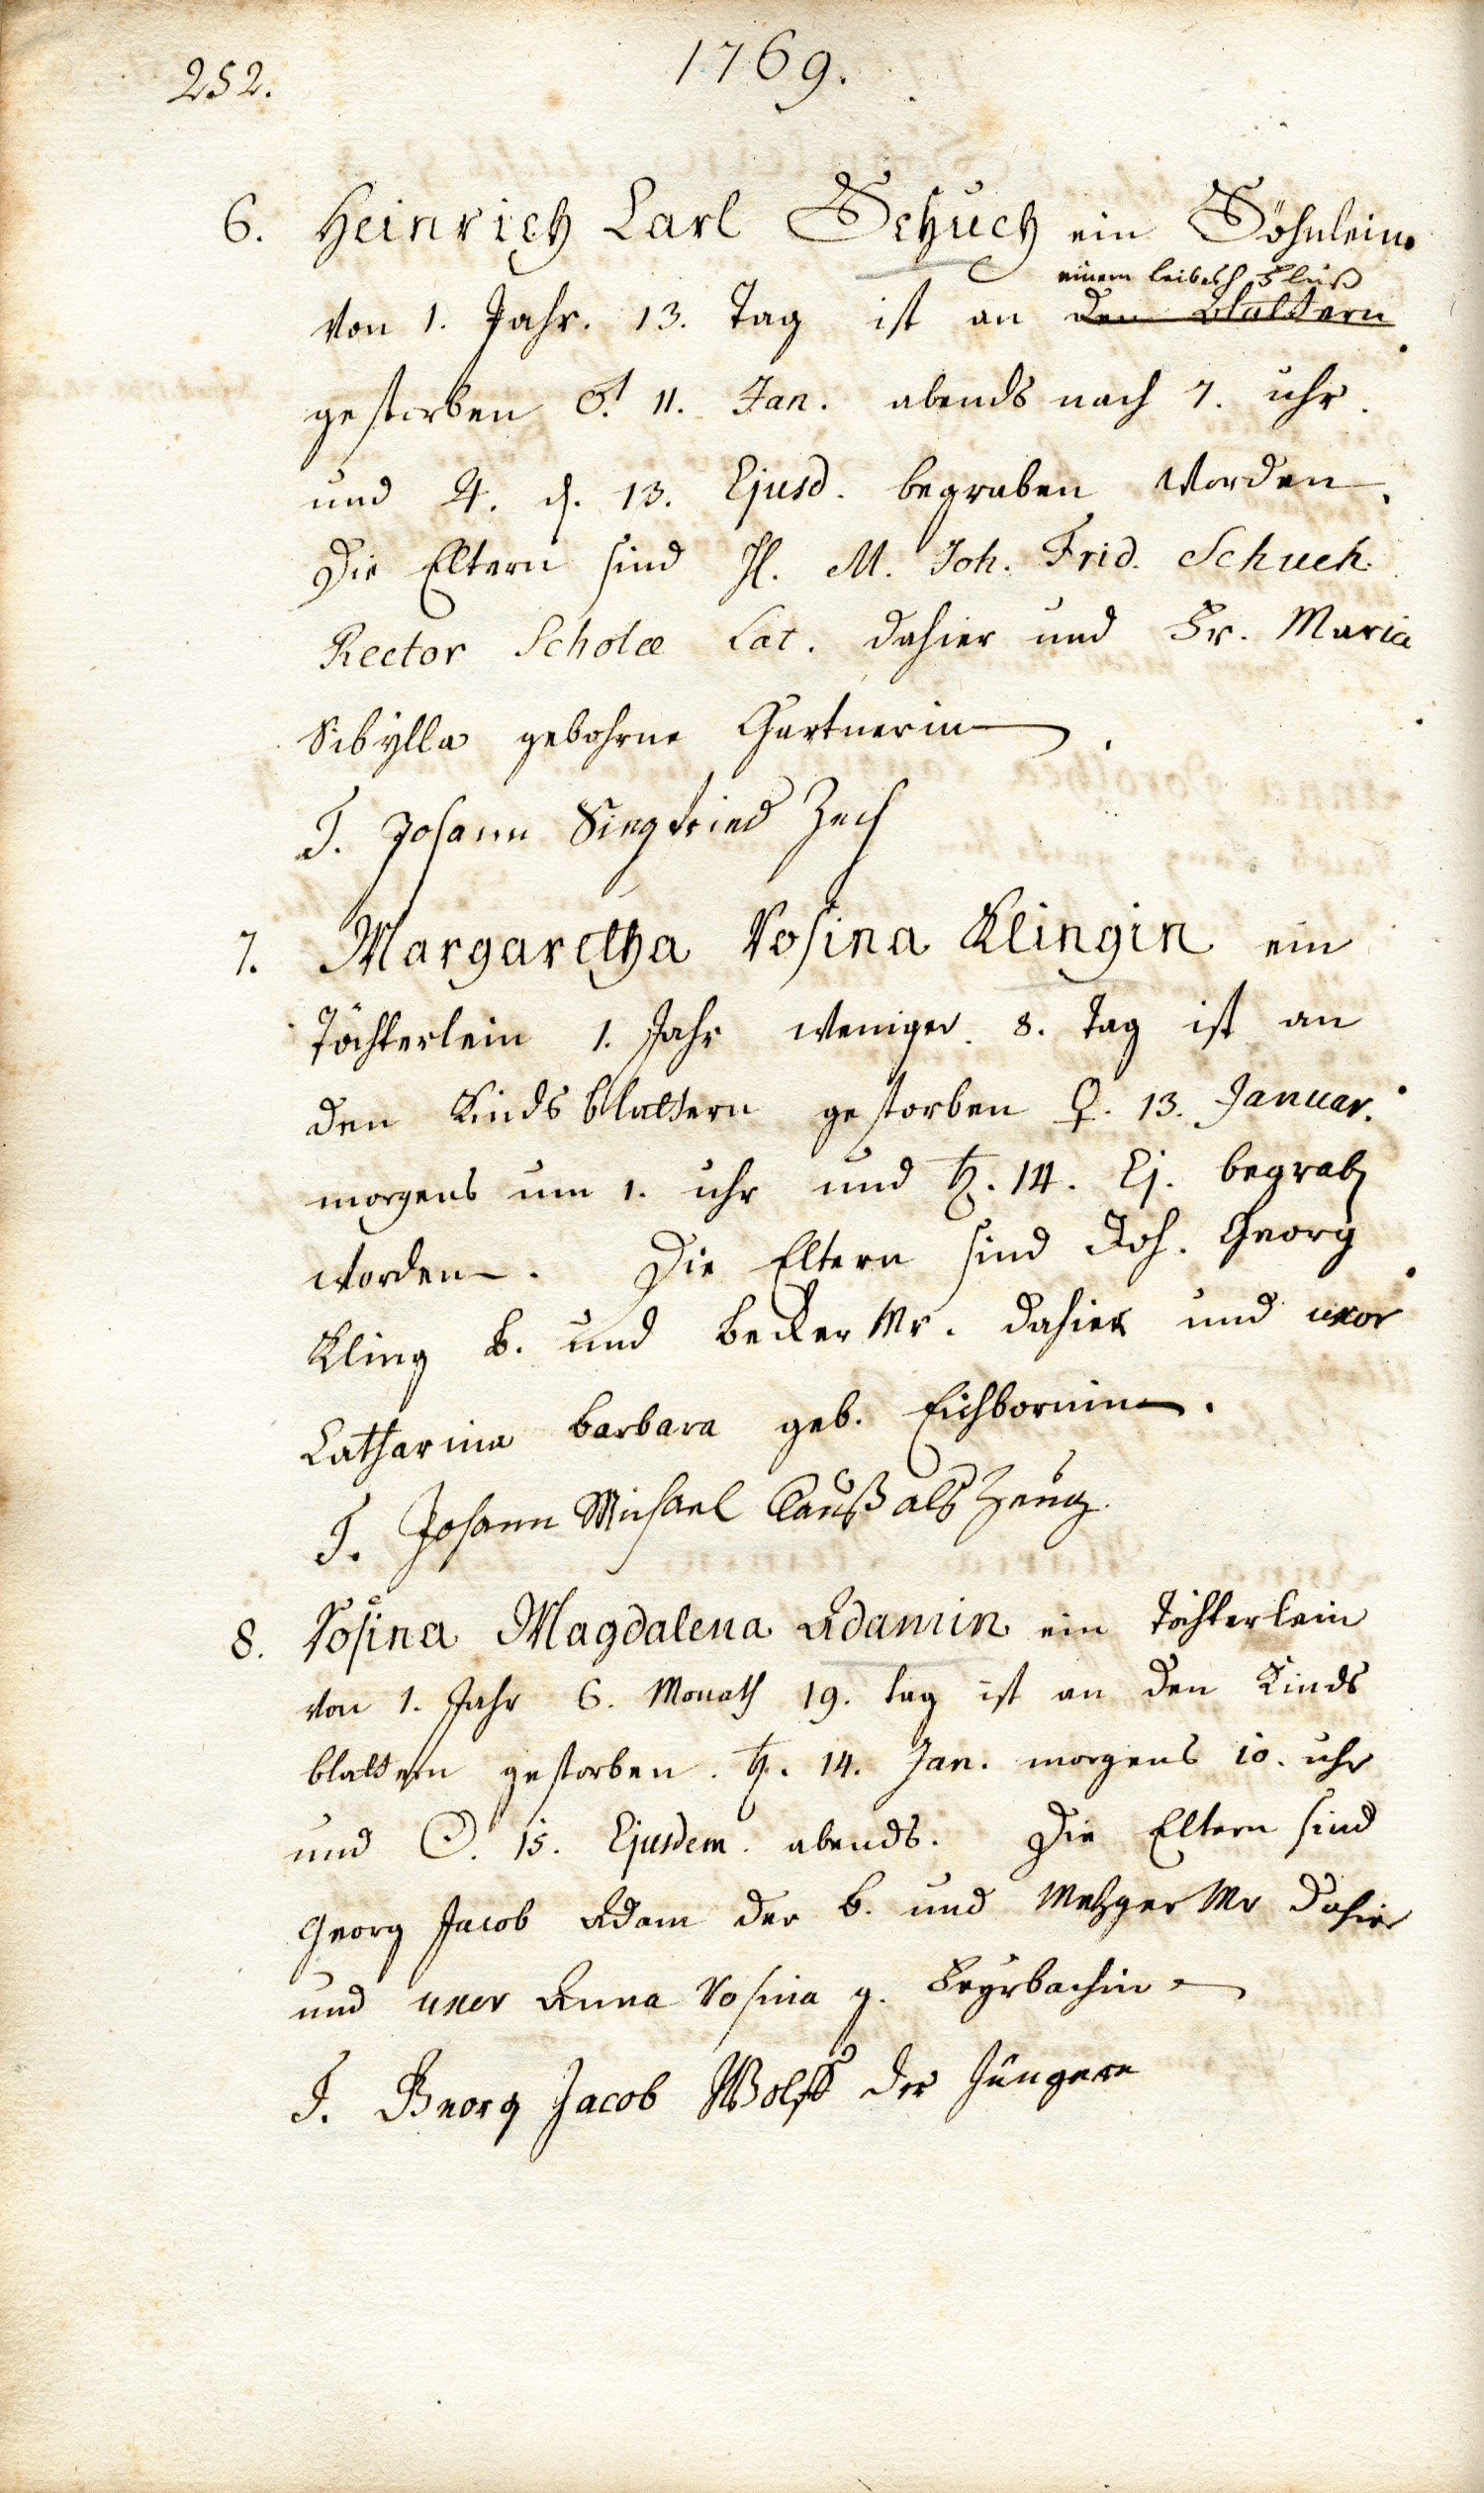 252.
1769.
6. Heinrich Carl Schuch ein Söhnlein
einem leibesh Fluß
von 1. Jahr. 13. Tag ist an den blattern
gestorben ♂. 11. Jan. abends nach 7. uhr.
und ♃. d. 13. Ejusd. begraben worden.
Die Eltern sind H. M. Joh. Frid. Schuch
Rector Scholæ Lat. dahier und Fr. Maria
Sibÿlla gebohrne Gartnerin.
T. Johann Siegfried Zech
7. Margaretha Rosina Klingin ein
Töchterlein 1. Jahr weniger 8. Tag ist an
den Kinds blattern gestorben ♀. 13. Januar.
morgens um 1. uhr und ♄. 14. Ej. begrab
worden. Die Eltern sind Joh. Georg
Kling b. und Becker Mr. dahier und uxor
Catharina Barbara geb. Eichbornin.
T. Johann Michael Clauß als Zeug.
8. Rosina Magdalena Adamin ein Töchterlein
von 1. Jahr 6. Monath 19. tag ist an den Kinds
blattern gestorben. ♄. 14. Jan. morgens 10. uhr
und ☉. 15. Ejusdem. abends. Die Eltern sind
Georg Jacob Adam der b. und Metzger Mr dahier
und uxor Anna Rosina g. Feyrbachin
T. Georg Jacob Wolff der Jüngere